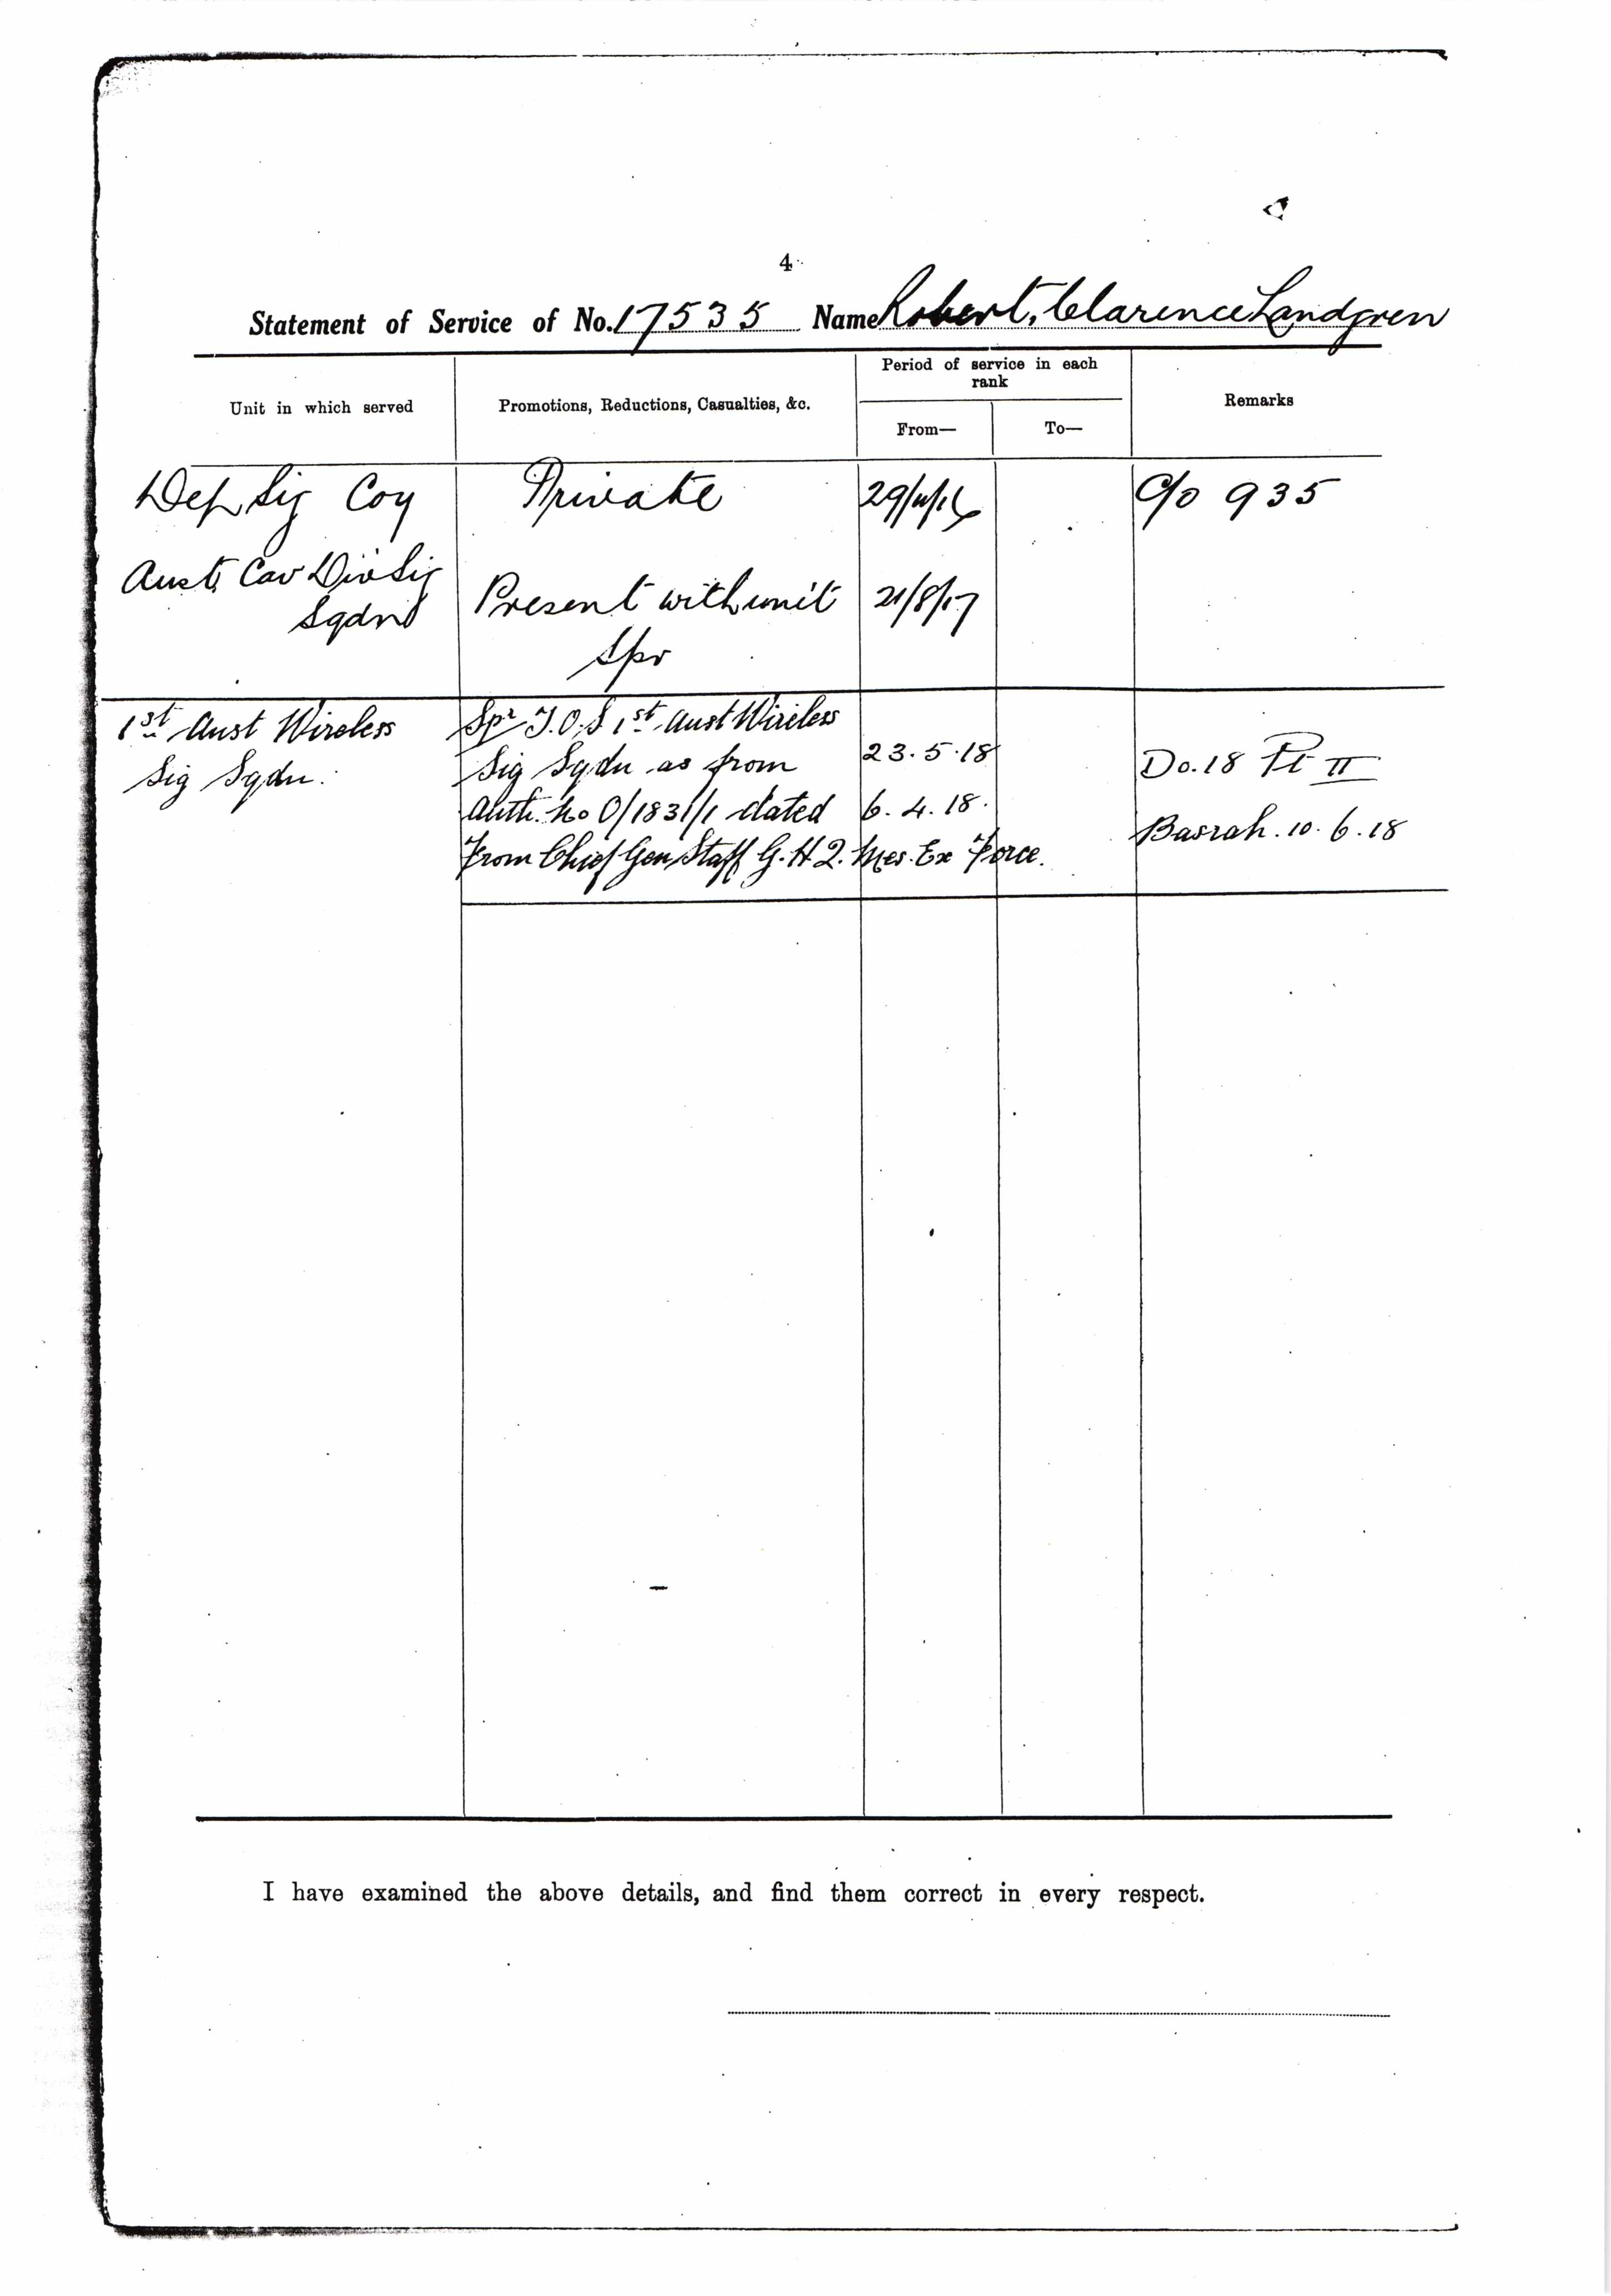 4
Statement of Service of No. 17535 Name Robert, Clarence Landgren
Period of service in each
rank
Unit in which served Promotions, Reductions, Casualties, &c. Remarks
From— To—
Dep Sig Coy Private 29/11/16 C/o 935
Aust, Cav Div Sig
Sqdn Present with unit 21/8/17
Spr
1st Aust Wireless Spr T.O.S 1st Aust Wireless
Sig Sqdn. Sig Sqdn as from 23.5.18 Do.18 Pt II
Auth. No O/1831/1 dated 6.4.18. Basrah. 10.6.18
From Chief Gen Staff G.H.Q. Mes. Ex Force.
I have examined the above details, and find them correct in every respect.